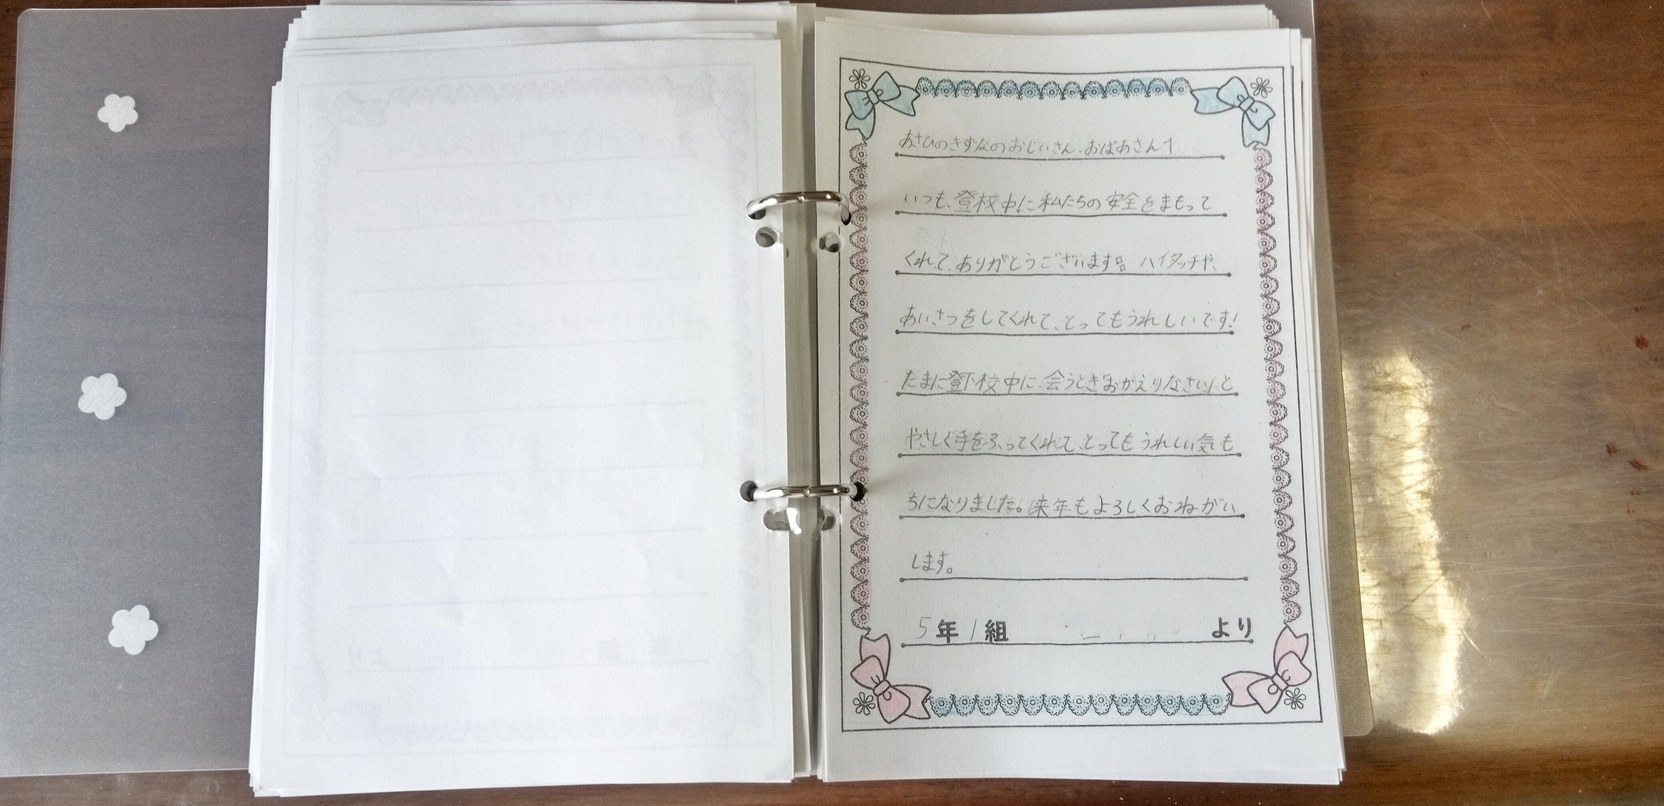 あさひのきずなのおじいさん、おばあさんへ
いつも、登校中に私たちの安全をまもって
くれて、ありがとうございます。ハイタッチや、
あいさつをしてくれて、とってもうれしいです!
たまに下校中に、会うとき「おかえりなさい」と
やさしく手をふってくれて、とってもうれしい気も
ちになりました。来年もよろしくおねがい
します。
5年1組 より